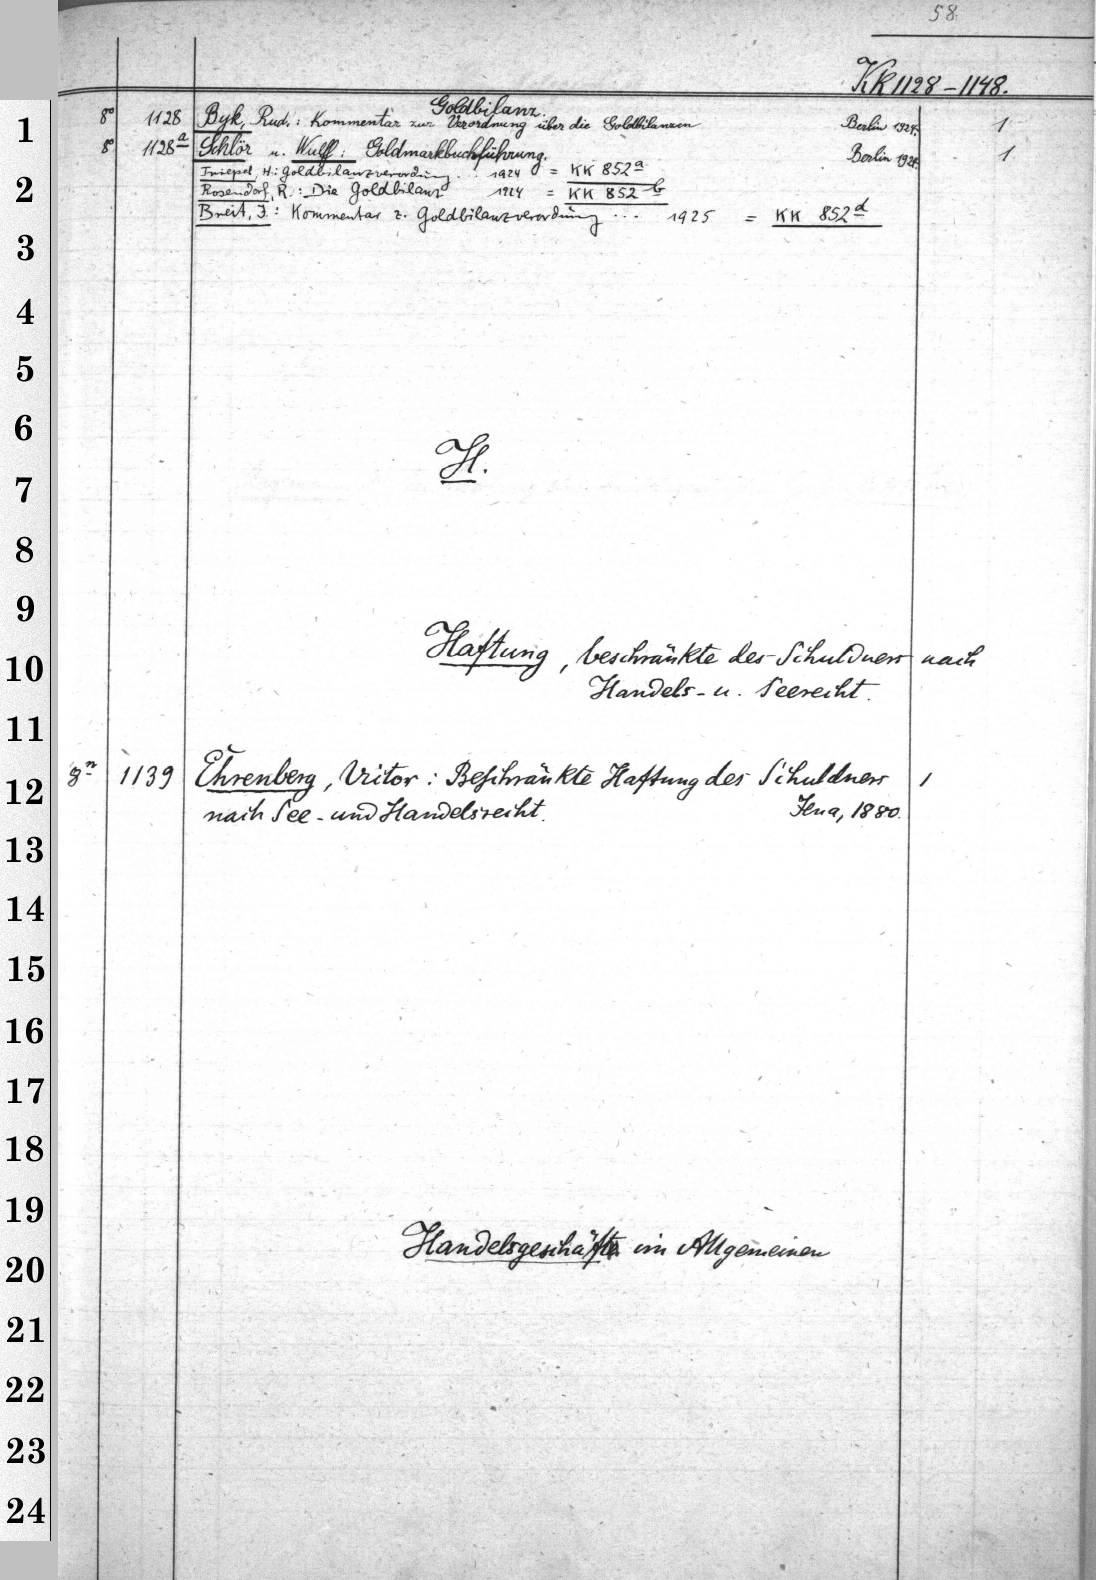 58.
KK 1128-1148.
Goldbilanz.
1
8° 1128 Byk, Rud.: Kommentar zur Verordnung über die Goldbilanzen Berlin 1924. 1
8° 1128a Schlör u. Wulff: Goldmarkbuchführung. Berlin 1924. 1
2
Triepel, H.: Goldbilanzverordnung... 1924 = KK 852a
Rosendorf, R.: Die Goldbilanz 1924 = KK 852b
Breit, J.: Kommentar z. Goldbilanzverordnung ... 1925 = KK 852d
3
4
5
6
H.
7
8
9
10
Haftung, beschränkte des Schuldners nach
Handels- u. Seerecht.
11
12
8° 1139 Ehrenberg, Victor: Beschränkte Haftung des Schuldners 1
nach See- und Handelsrecht. Jena, 1880.
13
14
15
16
17
18
19
Handelsgeschäfte im Allgemeinen
20
21
22
23
24